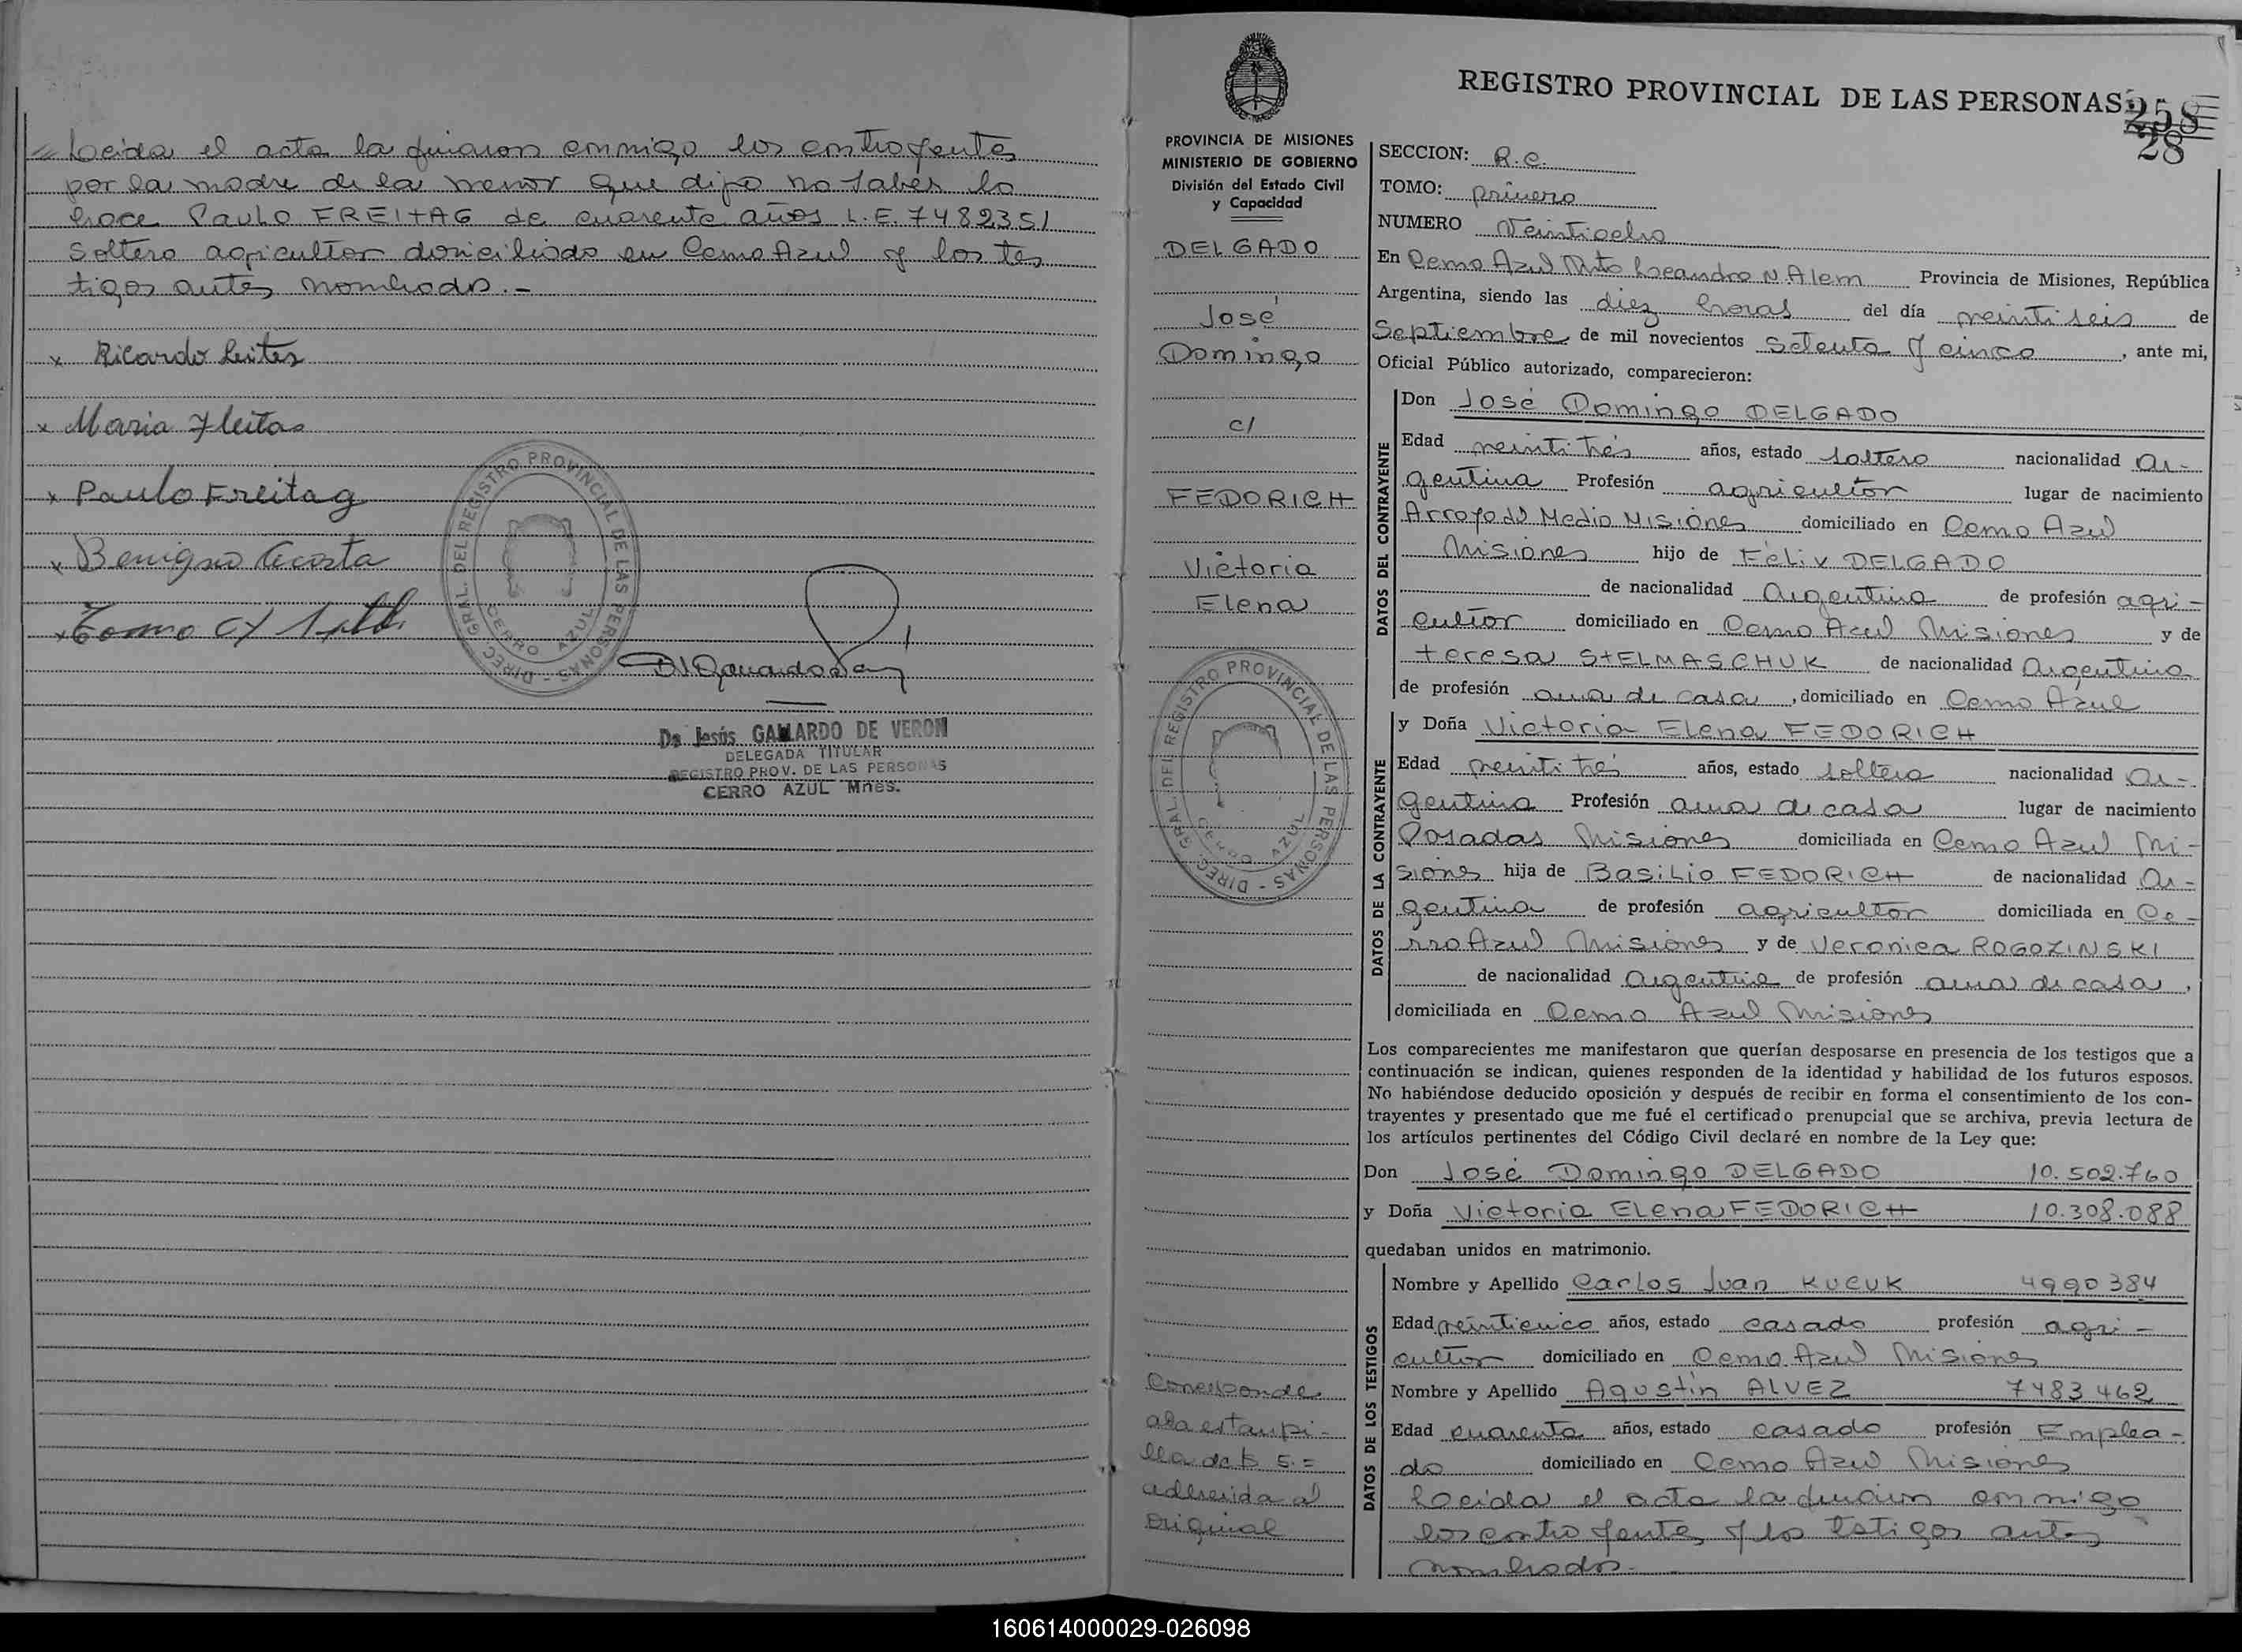 = Leida el acta la firaron conmigo los contrayentes
por la madre de la menor que dijo no saber lo
hace Paulo FREITAG de cuarenta años L.E. 7482351
soltero agricultor domiciliado en Cerro Azul y los tes
tigos antes nombrados.-
x Ricardo Leites
x Maria Fleitas
x Paulo Freitag
x Benigno Acosta
DIREC. GRAL. DEL REGISTRO PROVINCIAL DE LAS PERSONAS -
CERRO AZUL
Da Jesús GALLARDO DE VERON
DELEGADA TITULAR
REGISTRO PROV. DE LAS PERSONAS
CERRO AZUL Mnes.
PROVINCIA DE MISIONES
MINISTERIO DE GOBIERNO
División del Estado Civil
y Capacidad
DELGADO
José
Domingo
c/
FEDORICH
Victoria
Elena
DIREC. GRAL. DEL REGISTRO PROVINCIAL DE LAS PERSONAS -
CERRO AZUL
Corresponde
a la estampi-
lla de $ 5.=
adherida al
original
REGISTRO PROVINCIAL DE LAS PERSONAS
258
28
SECCION: R.C.
TOMO: primero
NUMERO Veintiocho
En Cerro Azul Dnto Leandro N. Alem Provincia de Misiones, República
Argentina, siendo las diez horas del día veintiseis de
Septiembre de mil novecientos setenta y cinco, ante mi,
Oficial Público autorizado, comparecieron:
DATOS DEL CONTRAYENTE
Don José Domingo DELGADO
Edad veintitrés años, estado soltero nacionalidad ar-
gentina Profesión agricultor lugar de nacimiento
Arroyo del Medio Misiones domiciliado en Cerro Azul
Misiones hijo de Félix DELGADO
de nacionalidad Argentina de profesión agri-
cultor domiciliado en Cerro Azul Misiones y de
teresa STELMASCHUK de nacionalidad Argentina
de profesión ama de casa, domiciliado en Cerro Azul
DATOS DE LA CONTRAYENTE
y Doña Victoria Elena FEDORICH
Edad veintitrés años, estado soltera nacionalidad Ar-
gentina Profesión ama de casa lugar de nacimiento
Posadas Misiones domiciliada en Cerro Azul Mi-
siones hija de Basilio FEDORICH de nacionalidad Ar-
gentina de profesión agricultor domiciliada en Ce-
rro Azul Misiones y de Veronica ROGOZINSKI
de nacionalidad Argentina de profesión ama de casa,
domiciliada en Cerro Azul Misiones
Los comparecientes me manifestaron que querían desposarse en presencia de los testigos que a
continuación se indican, quienes responden de la identidad y habilidad de los futuros esposos.
No habiéndose deducido oposición y después de recibir en forma el consentimiento de los con-
trayentes y presentado que me fué el certificado prenupcial que se archiva, previa lectura de
los artículos pertinentes del Código Civil declaré en nombre de la Ley que:
Don José Domingo DELGADO 10.502.760
y Doña Victoria Elena FEDORICH 10.308.088
quedaban unidos en matrimonio.
DATOS DE LOS TESTIGOS
Nombre y Apellido Carlos Juan KUCUK 4990384
Edad veinticinco años, estado casado profesión agri-
cultor domiciliado en Cerro Azul Misiones
Nombre y Apellido Agustín ALVEZ 7483462
Edad cuarenta años, estado casado profesión Emplea-
do domiciliado en Cerro Azul Misiones
Leida el acta la firmaron conmigo
los contrayentes y los testigos antes
nombrados.-
160614000029-026098